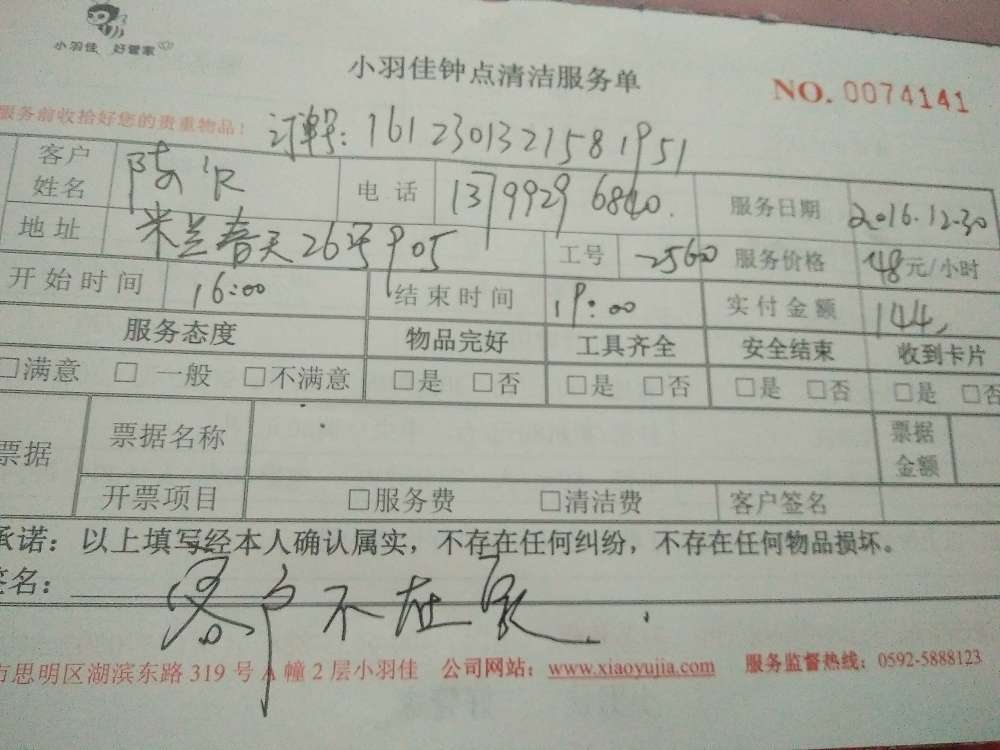 小羽佳 好管家
小羽佳钟点清洁服务单
NO. 0074141
服务前收拾好您的贵重物品！
订单号: 1612301321581951
客户姓名 陈 电话 13799296840. 服务日期 2016.12.30
地址 米兰春天26号905 工号 2560 服务价格 48元/小时
开始时间 16:00 结束时间 19:00 实付金额 144
服务态度 物品完好 工具齐全 安全结束 收到卡片
□满意 □ 一般 □不满意 □是 □否 □是 □否 □是 □否 □是 □否
票据 票据名称 票据金额
开票项目 □服务费 □清洁费 客户签名
承诺：以上填写经本人确认属实，不存在任何纠纷，不存在任何物品损坏。
签名： 客户不在家.
市思明区湖滨东路 319 号 A 幢 2 层小羽佳 公司网站：www.xiaoyujia.com 服务监督热线：0592-5888123